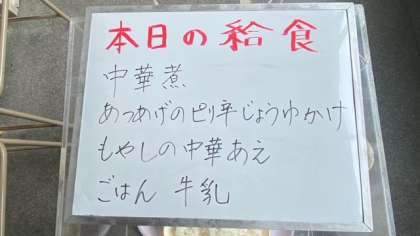 本日の給食
中華煮
あつあげのピリ辛じょうゆかけ
もやしの中華あえ
ごはん 牛乳